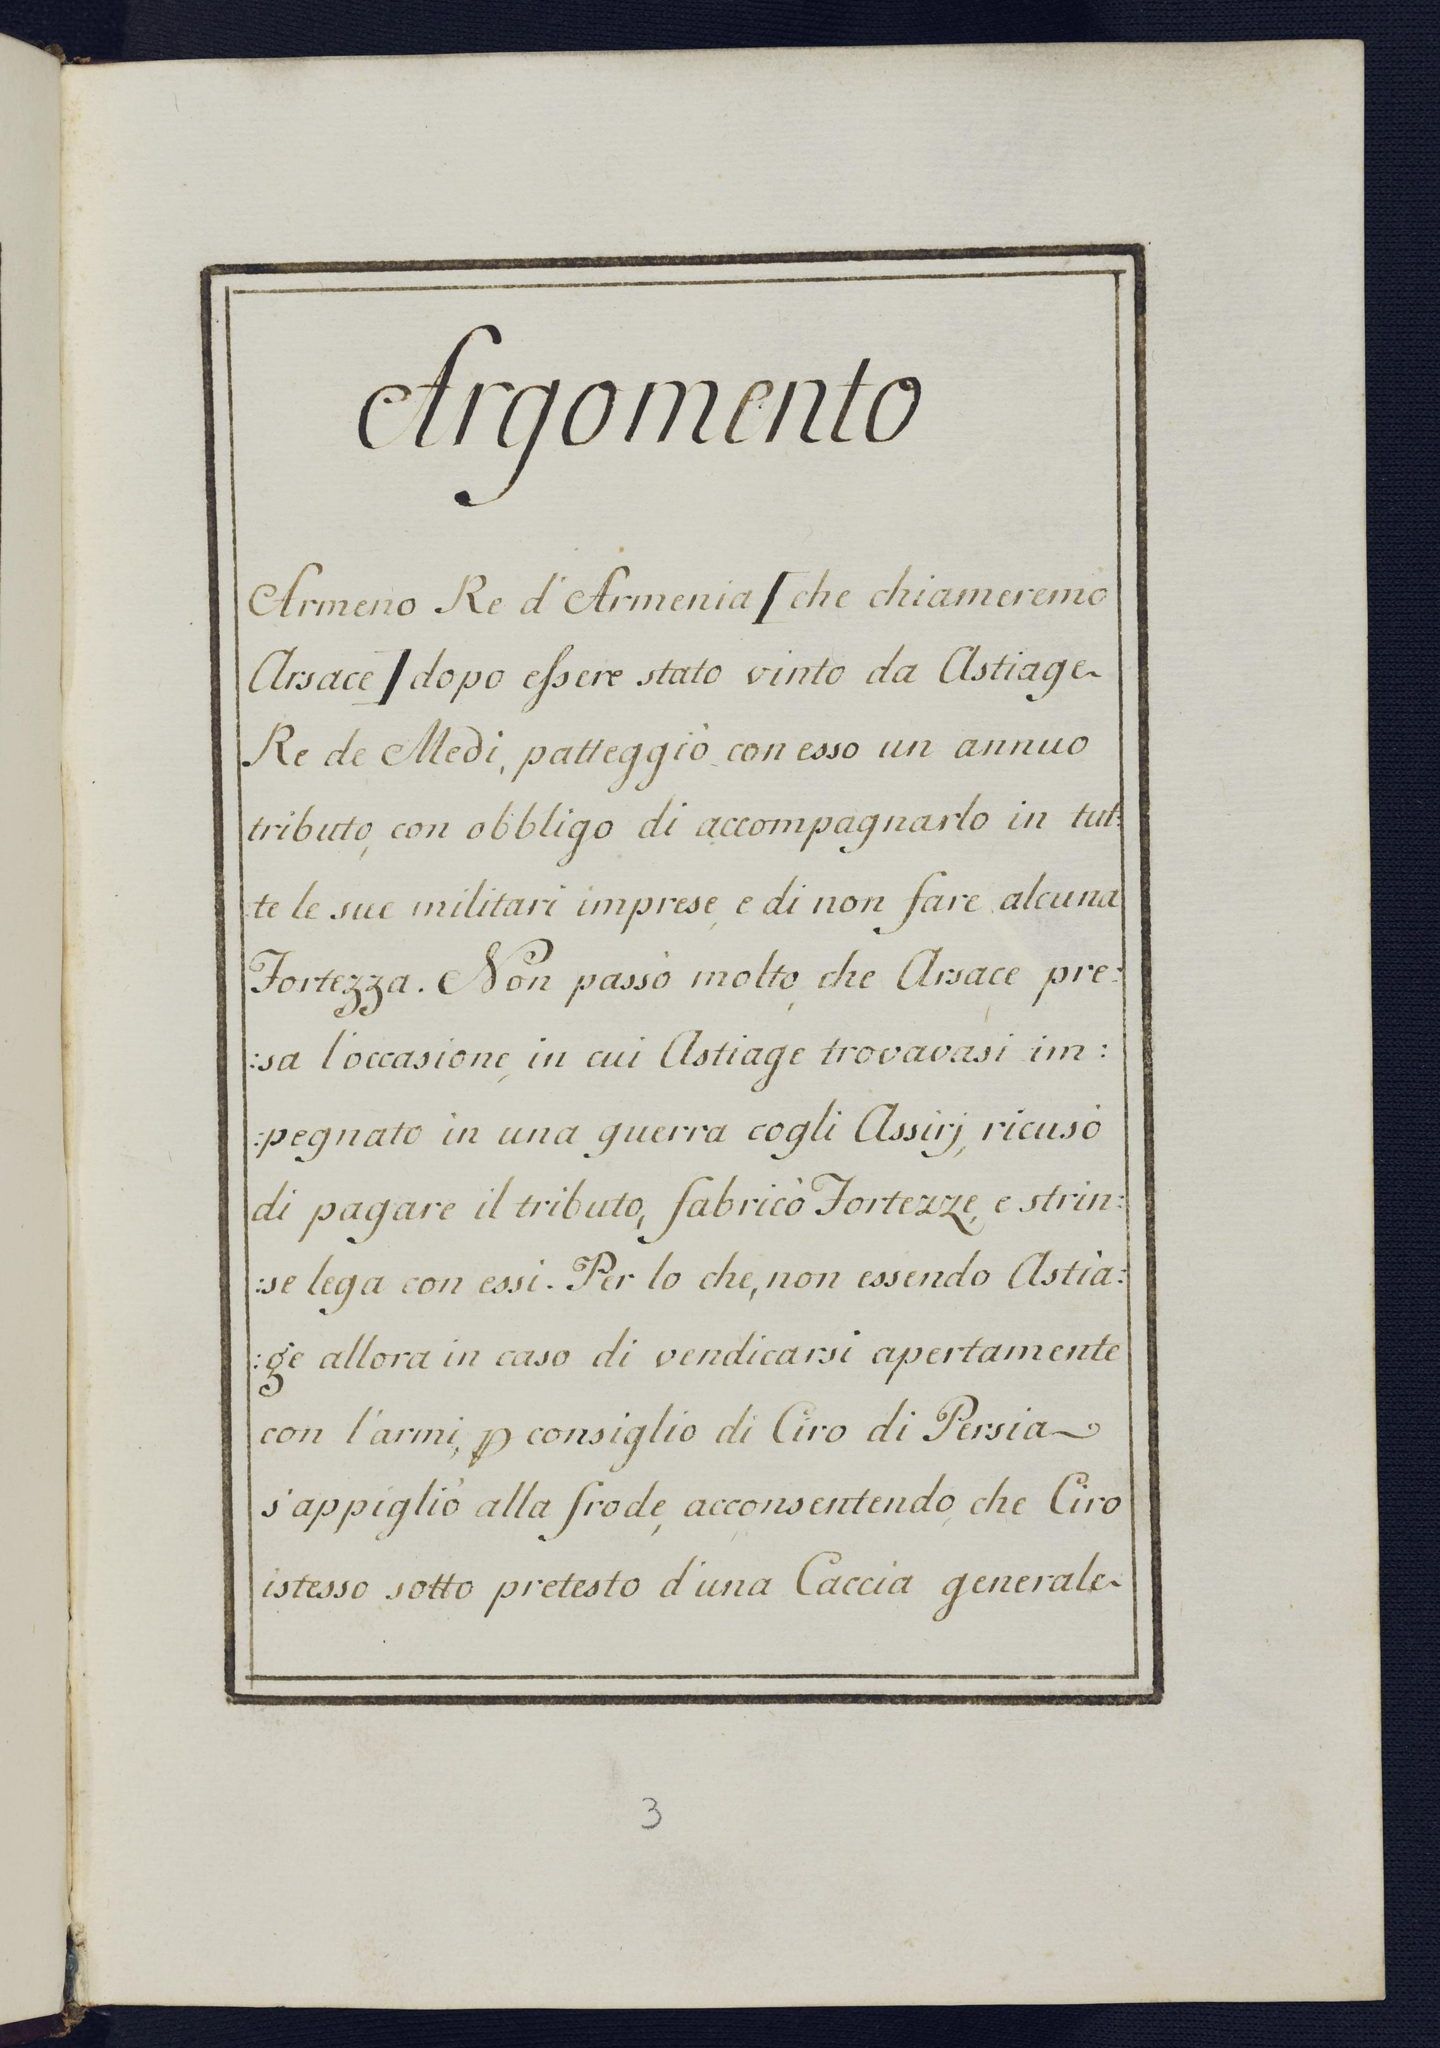 Argomento
Armeno Re d'Armenia [che chiameremo
Arsace] dopo eſsere stato vinto da Astiage
Re de Medi, patteggiò con esso un annuo
tributo, con obbligo di accompagnarlo in tut:
te le sue militari imprese, e di non fare alcuna
Fortezza. Non passò molto, che Arsace, pre:
:sa l'occasione, in cui Astiage trovavasi im:
:pegnato in una guerra cogli Assirj, ricusò
di pagare il tributo, fabricò Fortezze, e strin:
:se lega con essi. Per lo che, non essendo Astia:
:ge allora in caso di vendicarsi apertamente
con l'armi, ꝑ consiglio di Ciro di Persia
s'appigliò alla frode, acconsentendo, che Ciro
istesso sotto pretesto d'una Caccia generale
3